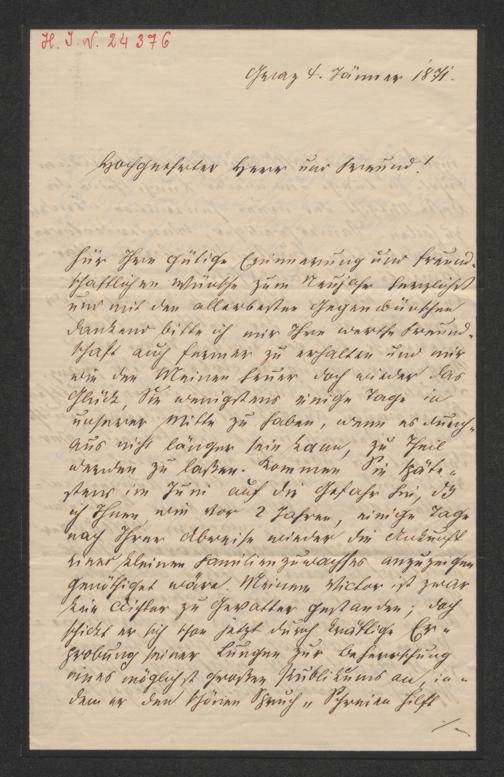 H. I. N. 24376
Graz 4. Jänner 1871.
Hochgeehrter Herr und Freund!
Für Ihre gütige Erinnerung und freund-
schaftlichen Wünsche zum Neujahr herzlichst
und mit den allerbesten Gegenwünschen
dankend bitte ich mir Ihre werthe Freund-
schaft auch ferner zu erhalten und mir
wie den Meinen heuer doch wieder das
Glück, Sie wenigstens einige Tage in
unserer Mitte zu haben, wenn es durch-
aus nicht länger sein kann, zu Theil
werden zu laßen. Kommen Sie späte-
stens im Juni auf die Gefahr hin, dß
ich Ihnen wie vor 2 Jahren, einige Tage
nach Ihrer Abreise wieder die Ankunft
eines kleinen Familienzuwachses anzuzeigen
genöthiget wäre. Meinem Victor ist zwar
kein zu Gevatter gestanden; doch
schickt er sich schon jetzt durch kräftige Er-
probung seiner Lungen zur Beherrschung
eines möglichst großen Publikums an, in-
dem er den schönen Spruch „Schreien hilft